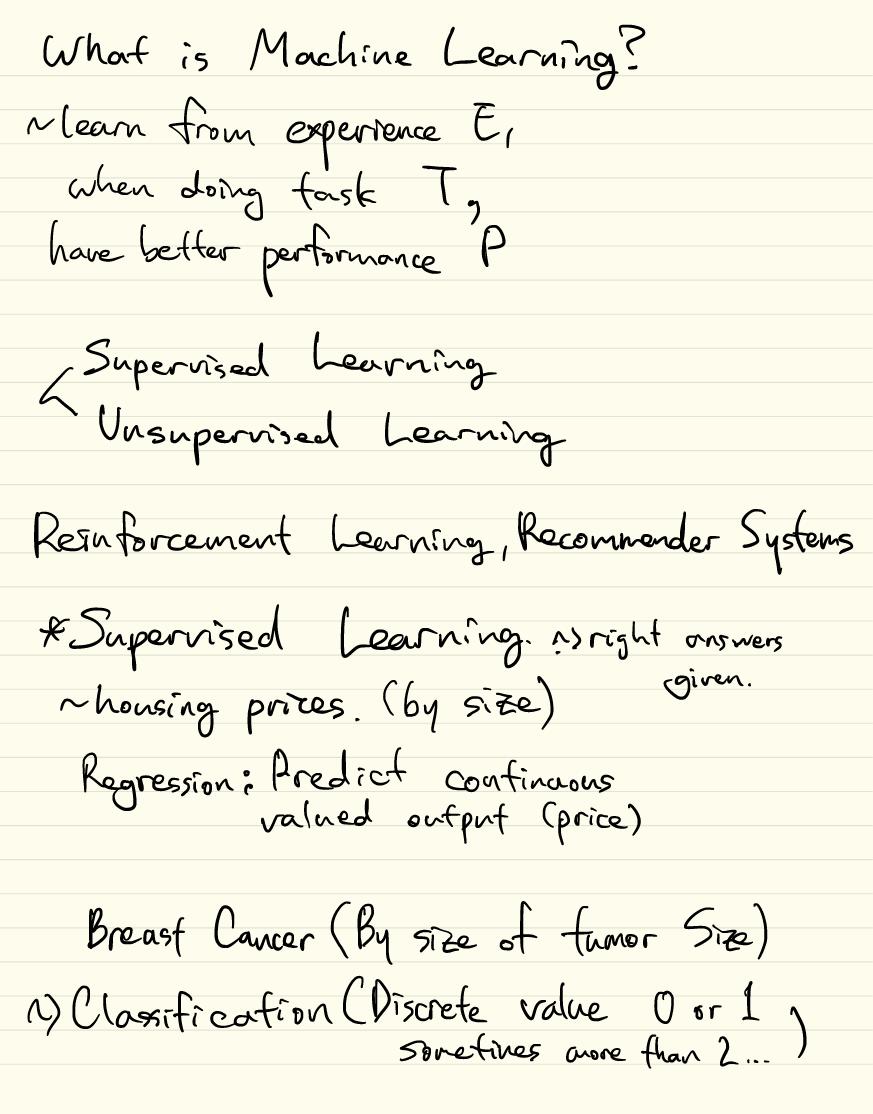 What is Machine Learning?
~learn from experience E,
when doing task T,
have better performance P
Supervised Learning
Unsupervised Learning
Reinforcement Learning, Recommender Systems
*Supervised Learning. ~> right answers
given.
~housing prices. (by size)
Regression: Predict continuous
valued output (price)
Breast Cancer (By size of tumor Size)
~> Classification (Discrete value 0 or 1
sometimes more than 2... )